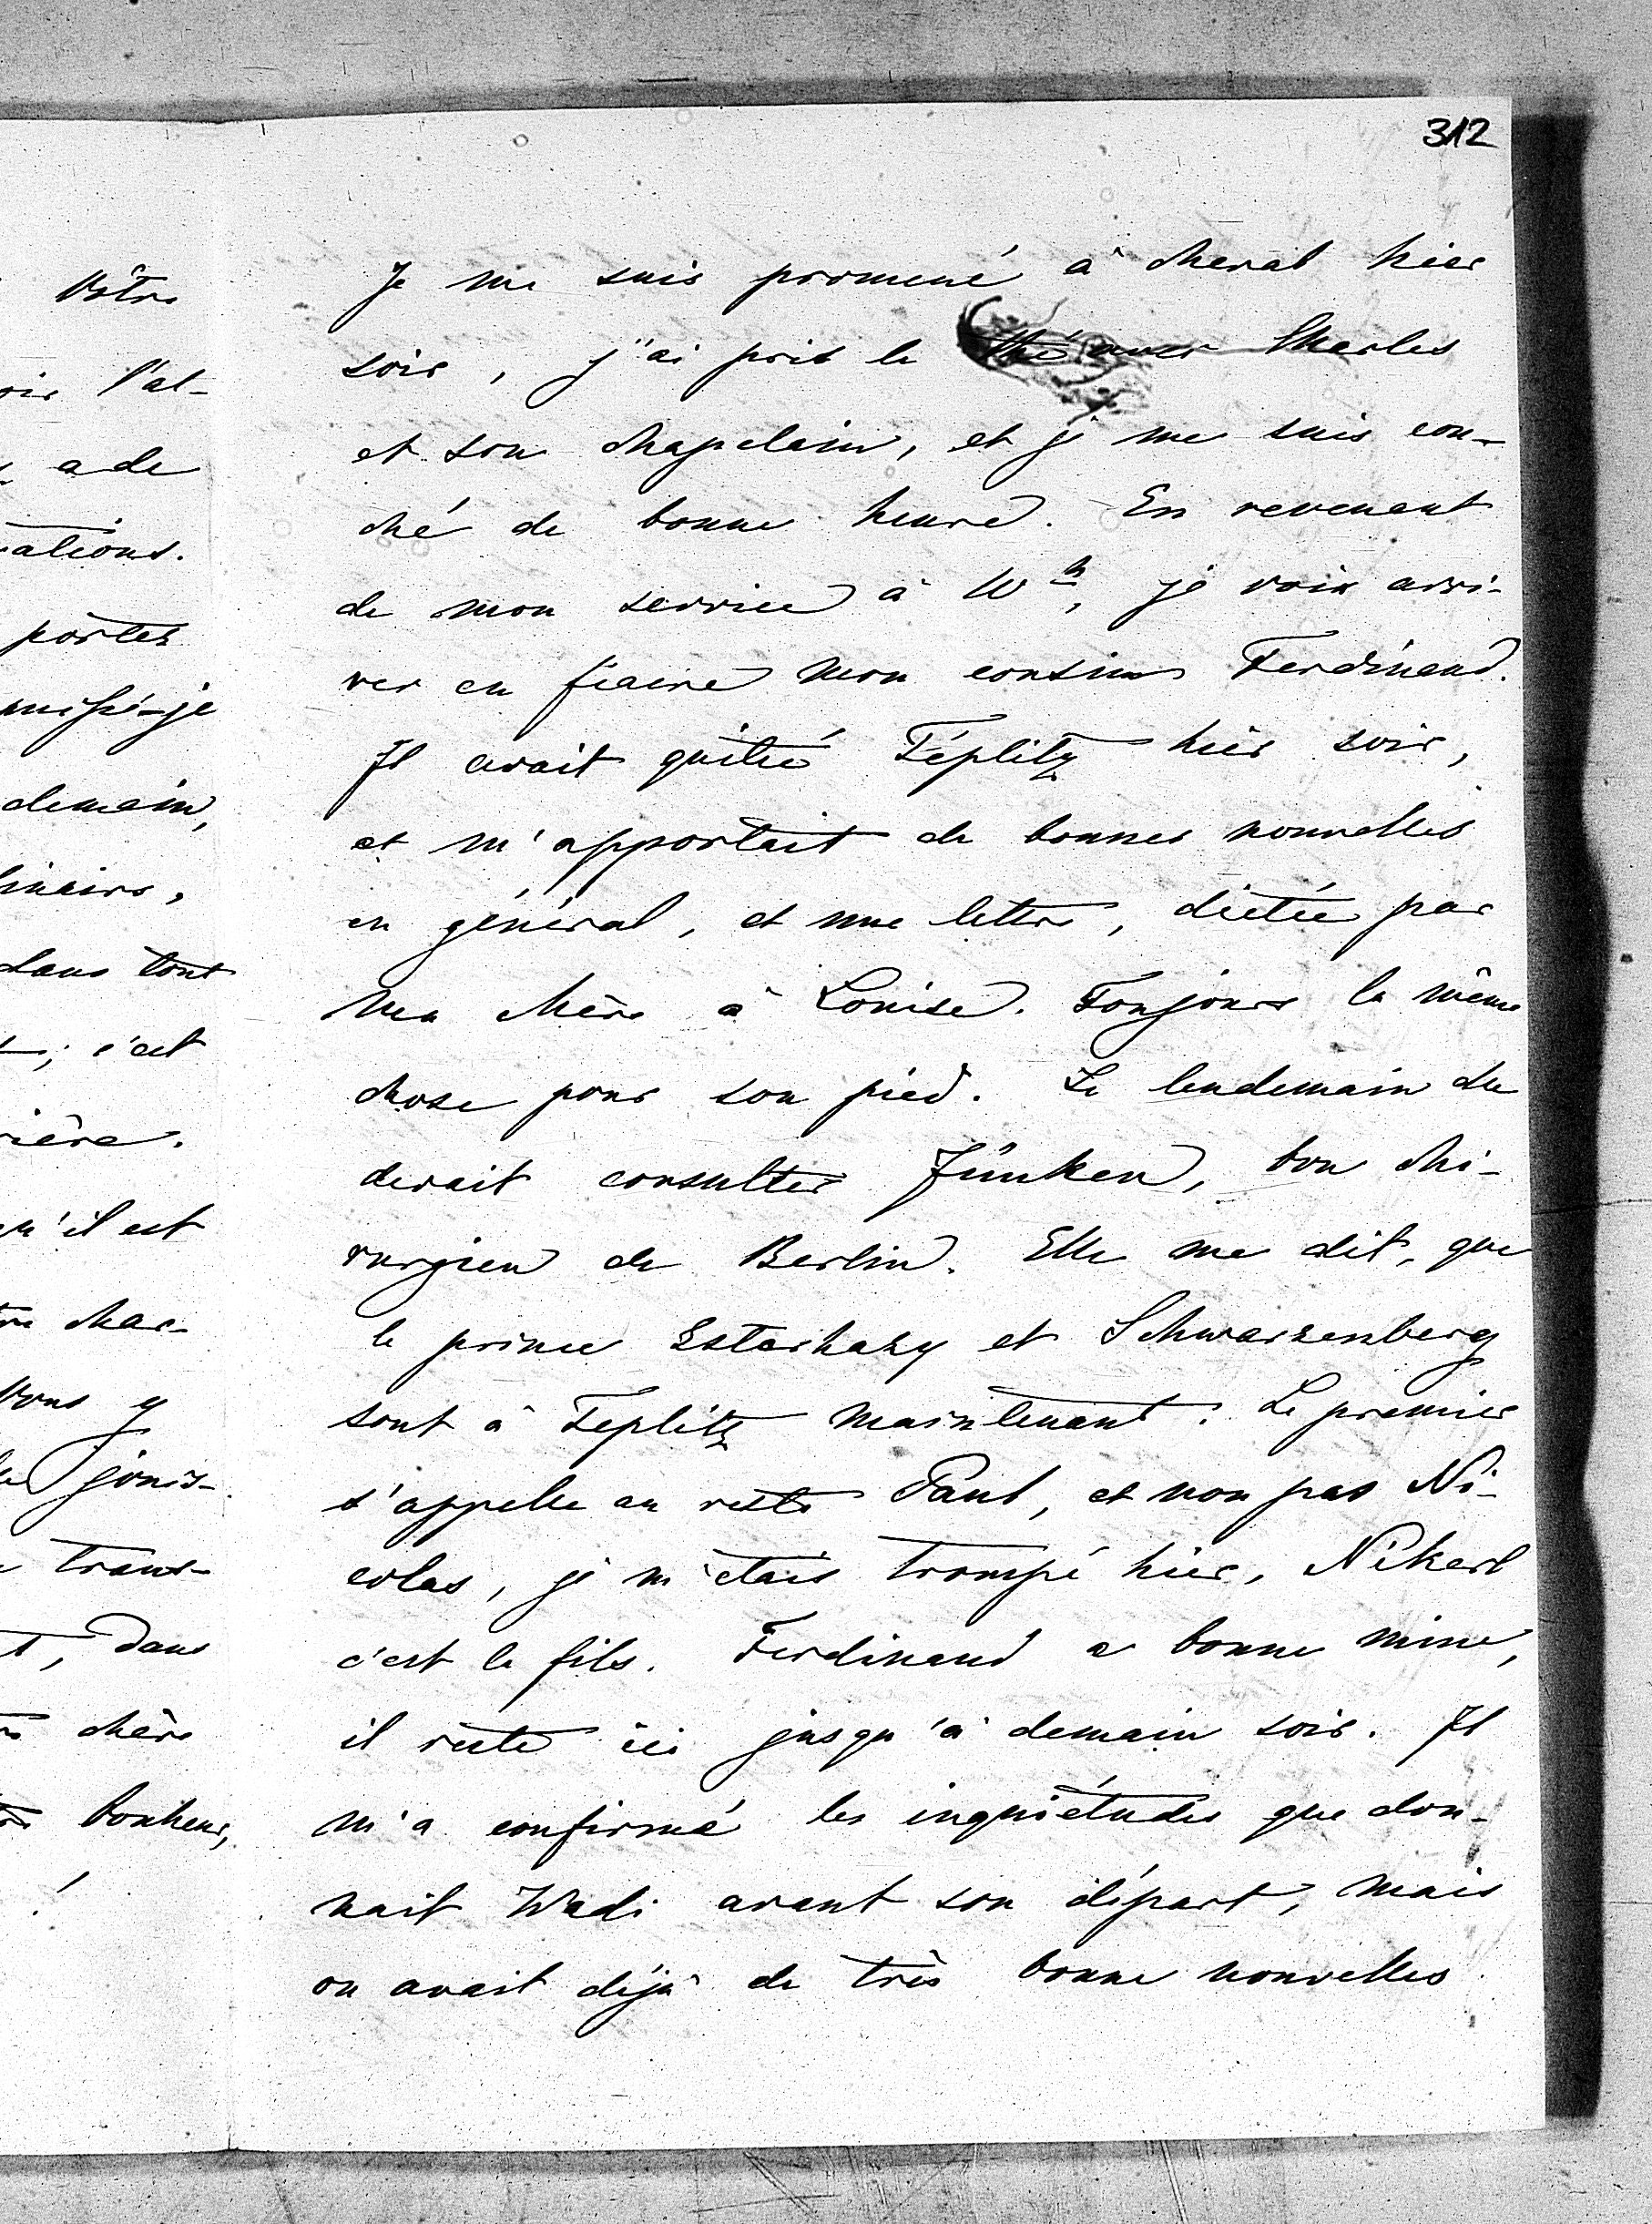 312
Vôtre
l'at-
a de
ations.
portes
demain,
dans tout
; c'est
ière.
qu'il est
chac-
Vous y
jouis-
trans-
, dans
chère
bonheur,
!
Je me suis promené à cheval hier
soir, j'ai pris le thé avec Charles
et son chapelain, et je me suis cou-
ché de bonne heure. En revenant
de mon service à 10 h, je vois arri-
ver en fiacre mon cousin Ferdinand.
Il avait quitté Téplitz hier soir,
et m'apportait de bonnes nouvelles
en général, et une lettre, dictée par
ma chère à Louise. Toujours la même
chose pour son pied. Le lendemain elle
devait consulter Jünken, bon chi-
rurgien de Berlin. Elle me dit, que
le prince Estarhazy et Schwarzenberg
sont à Teplitz maintenant. Le premier
s'appelle au reste Paul, et non pas Ni-
colas, je m'étais trompé hier, Nikerl
c'est le fils. Ferdinand a bonne mine,
il reste ici jusqu'à demain soir. Il
m'a confirmé les inquiétudes que don-
nait Wadi avant son départ, mais
on avait déjà de très bonne nouvelles